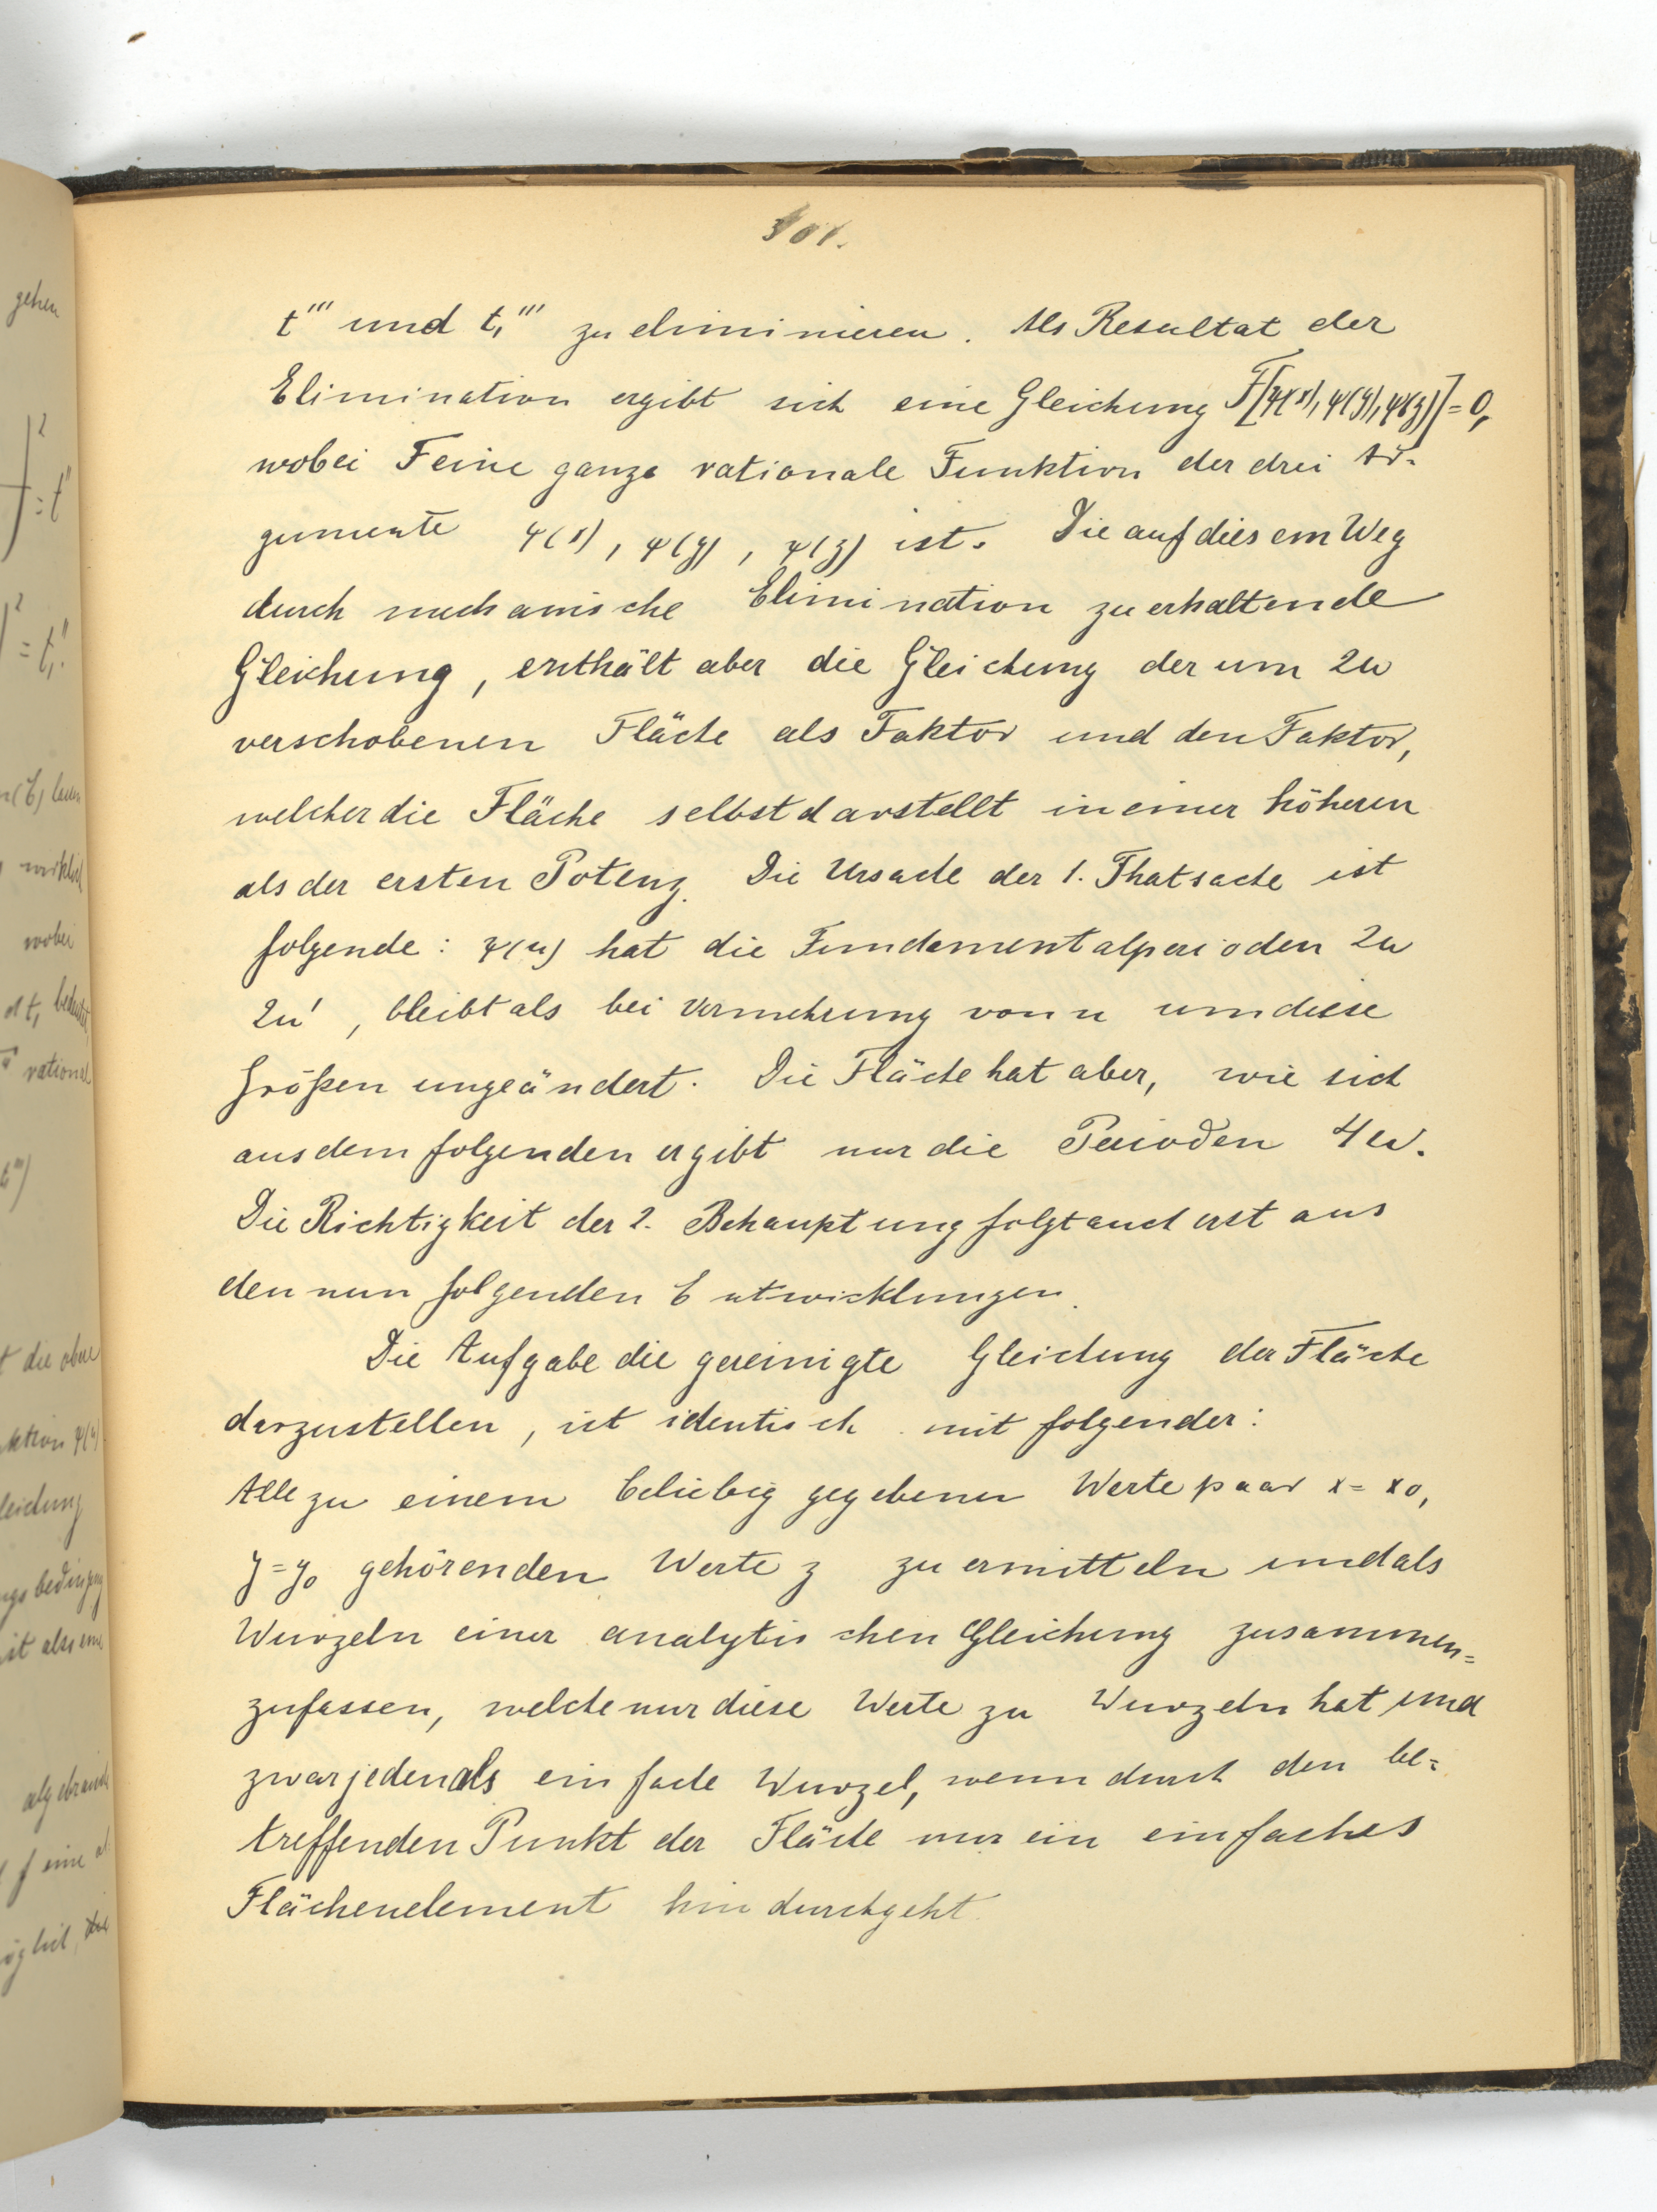 301.
t''' und t,''' zu eliminieren. Als Resultat der
Elimination ergibt sich eine Gleichung F[ψ(x), ψ(y), ψ(z)] = 0,
wobei F eine ganze rationale Funktion der drei Ar-
gumente ψ(x), ψ(y), ψ(z) ist. Die auf diesem Weg
durch mechanische Elimination zu erhaltende
Gleichung, enthält aber die Gleichung der um 2ω
verschobenen Fläche als Faktor und den Faktor,
welcher die Fläche selbst darstellt in einer höheren
als der ersten Potenz. Die Ursache der 1. Thatsache ist
folgende: ψ(u) hat die Fundamentalperioden 2ω
2ω', bleibt als bei Vermehrung von u um diese
Größen ungeändert. Die Fläche hat aber, wie sich
aus dem folgenden ergibt nur die Perioden 4ω.
Die Richtigkeit der 2. Behauptung folgt auch erst aus
den nun folgenden Entwicklungen.
Die Aufgabe die gereinigte Gleichung der Fläche
darzustellen, ist identisch mit folgender:
Alle zu einem beliebig gegebenen Wertepaar x = x0,
y = y0 gehörenden Werte z zu ermitteln und als
Wurzeln einer analytischen Gleichung zusammen=
zufassen, welche nur diese Werte zu Wurzeln hat und
zwar jeden als einfache Wurzel, wenn durch den be=
treffenden Punkt der Fläche nur ein einfaches
Flächenelement hindurchgeht.
gehen
= t''
= t,''
wirklich
wobei
rational
t die obere
Gleichung
ist also eine